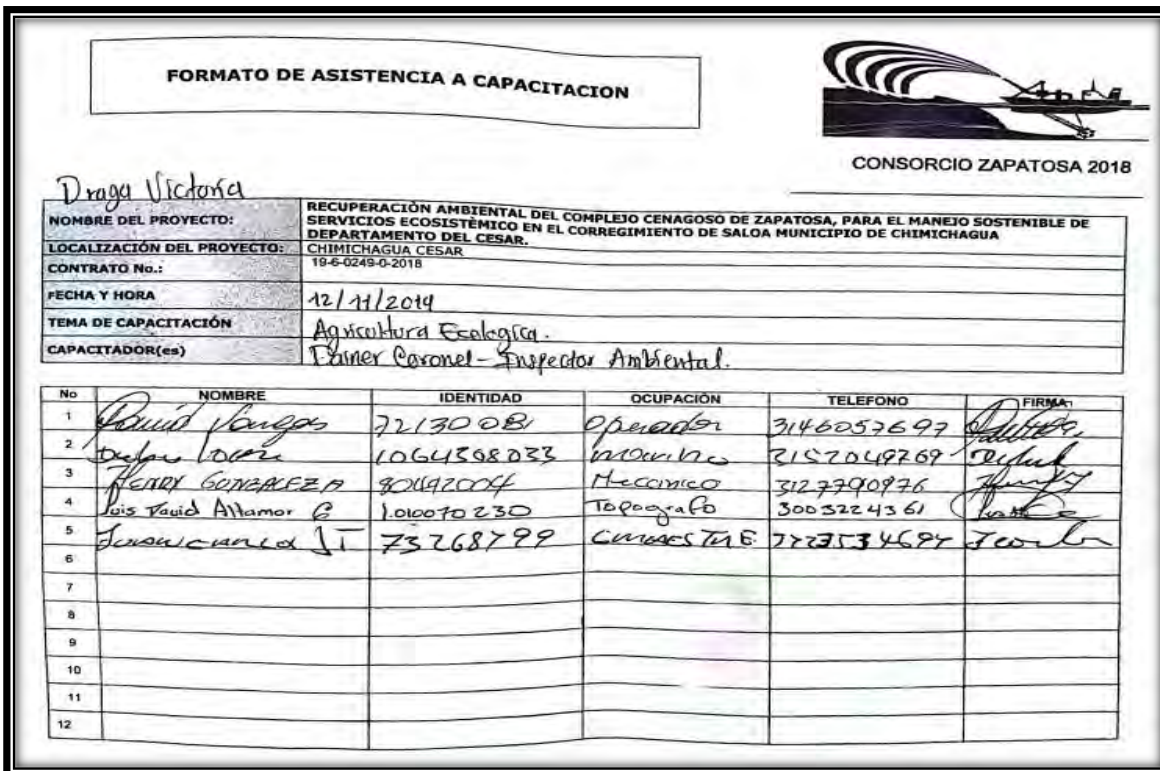 FORMATO DE ASISTENCIA A CAPACITACION
CONSORCIO ZAPATOSA 2018
Draga Victoria
NOMBRE DEL PROYECTO: RECUPERACIÓN AMBIENTAL DEL COMPLEJO CENAGOSO DE ZAPATOSA, PARA EL MANEJO SOSTENIBLE DE
SERVICIOS ECOSISTÈMICO EN EL CORREGIMIENTO DE SALOA MUNICIPIO DE CHIMICHAGUA
DEPARTAMENTO DEL CESAR.
LOCALIZACIÓN DEL PROYECTO: CHIMICHAGUA CESAR
CONTRATO No.: 19-6-0249-0-2018
FECHA Y HORA 12/11/2019
TEMA DE CAPACITACIÓN Agricultura Ecologica.
CAPACITADOR(es) Coronel - Inspector Ambiental.
No NOMBRE IDENTIDAD OCUPACIÓN TELEFONO FIRMA
1 David Vargas 72130081 Operador 3146057697
2 1064308033 marino 3157049769
3 HENRY GONZALEZ A Meccinico 3127790976
4 Luis David Altamar G 1.010070230 Topografo 3003224361
5 73268799
6
7
8
9
10
11
12